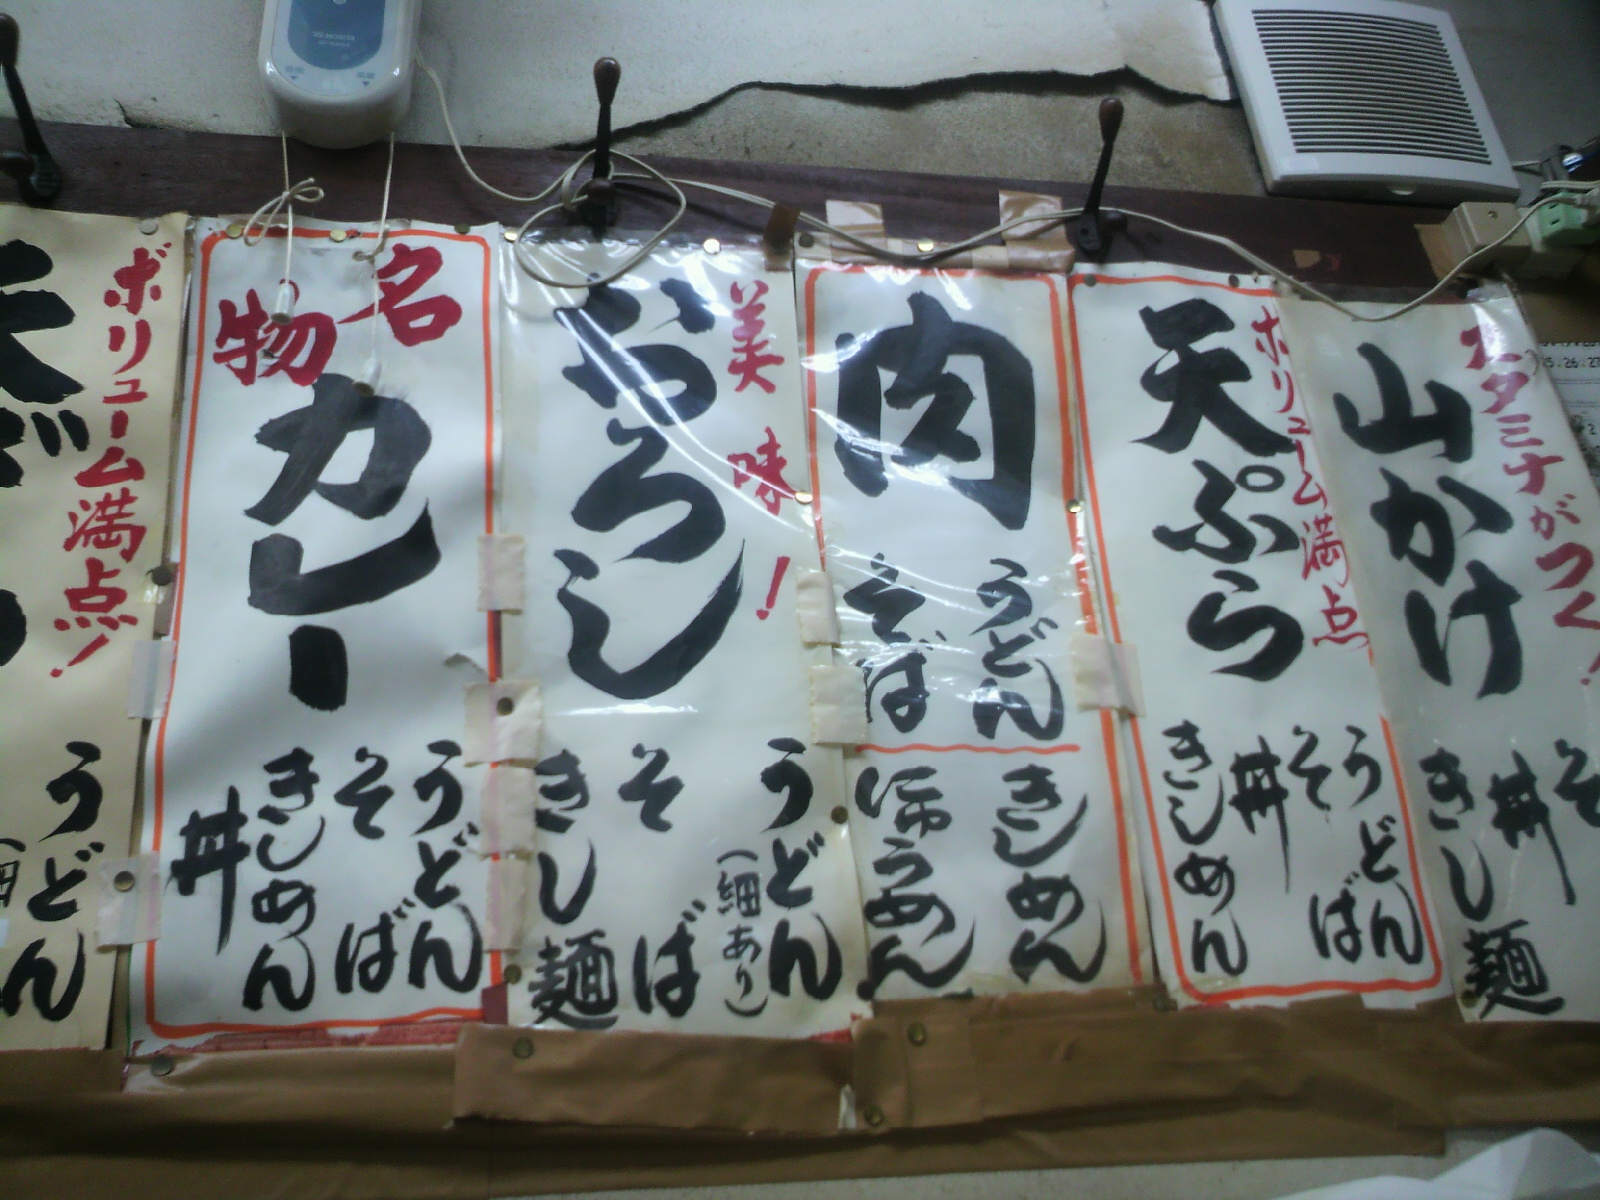 スタミナがつく！
山かけ
そ
丼
きし麺
ボリューム満点
天ぷら
うどん
そば
丼
きしめん
肉
うどん
そば
きしめん
うめん
美味！
おろし
うどん
（細あり）
そば
きし麺
名物
カレー
うどん
そば
きしめん
丼
ボリューム満点！
うどん